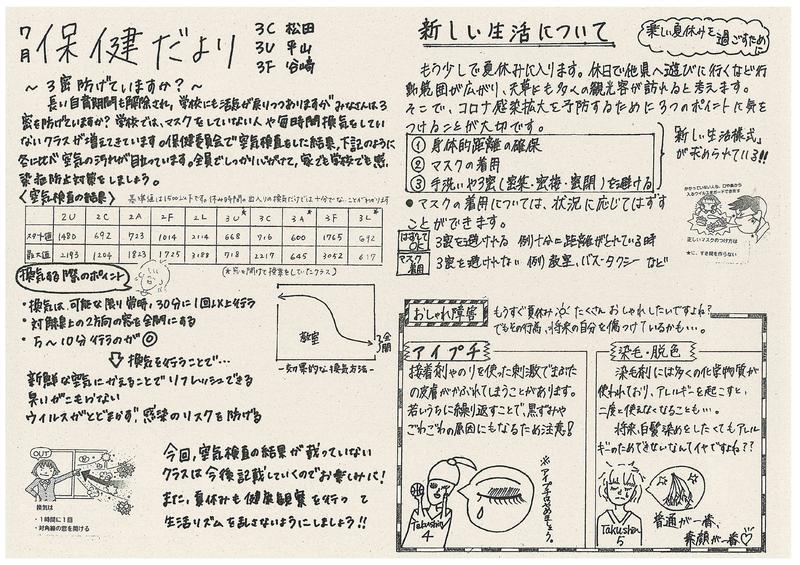 7月 保健だより
3C 松田
3U 平山
3F 谷崎
～3密防げていますか？～
長い自粛期間も解除され、学校にも活気が戻りつつありますがみなさんは3
密を防げていますか？学校では、マスクをしていない人や毎時間換気をしてい
ないクラスが増えてきています。保健委員会で空気検査をした結果、下記のように
各にはび空気の汚れが目立っています。全員でしっかり心がけて、家でも学校でも感
染拡防止対策をしましょう。
〈空気検査の結果〉 基準値は1500以下です。休み時間の出入りの換気だけでは十分でないことがわかります
2U 2C 2A 2F 2L 3U* 3C 3A* 3F 3L*
スタート値 1480 692 723 1014 2114 668 716 600 1765 692
最大値 2193 1204 1823 1725 3188 918 2217 645 3052 617
(*窓を開けて授業をしていたクラス)
換気する際のポイント
・換気は、可能な限り常時、30分に1回以上行う
・対角線上の2方向の窓を全開にする
・5～10分行うのが◎
換気を行うことで…
新鮮な空気にかえることでリフレッシュできる
臭いがこもらない
ウイルスがとどまらず、感染のリスクを防げる
教室
全開
-効果的な換気方法-
OUT
換気は
・1時間に1回
・対角線の窓を開ける
今回、空気検査の結果が載っていない
クラスは今後記載していくのでお楽しみに！
また、夏休みも健康観察を行って
生活リズムを乱さないようにしましょう!!
新しい生活について
楽しい夏休みを
過ごすために
もう少しで夏休みに入ります。休日で他県へ遊びに行くなど行
動範囲が広がり、天草にも多くの観光客が訪れると考えます。
そこで、コロナ感染拡大を予防するために3つのポイントに気を
つけることが大切です。
① 身体的距離の確保
② マスクの着用
③ 手洗いや3密(密集・密接・密閉)を避ける
「新しい生活様式」
が求められている!!
●マスクの着用については、状況に応じてはずす
ことができます。
はずしてOK 3密を避けれる 例)十分に距離がとれている時
マスク着用 3密を避けれない 例)教室、バス・タクシーなど
正しいマスクのつけ方は
★に、すき間を作らない
おしゃれ障害
もうすぐ夏休み たくさんおしゃれしたいですよね？
でもその行為、将来の自分を傷つけているかも…。
アイプチ
接着剤やのりを使った刺激でまぶた
の皮膚がかぶれてしまうことがあります。
若いうちに繰り返すことで、黒ずみや
ごわごわの原因にもなるため注意！
※アイプチはやめましょう。
Takushin
4
染毛・脱色
染毛剤には多くの化学物質が
使われており、アレルギーを起こすと、
二度と使えなくなることも…。
将来、白髪染めをしたくてもアレル
ギーのためできないなんてイヤですよね??
Takushin
5
普通が一番、
素顔が一番♡